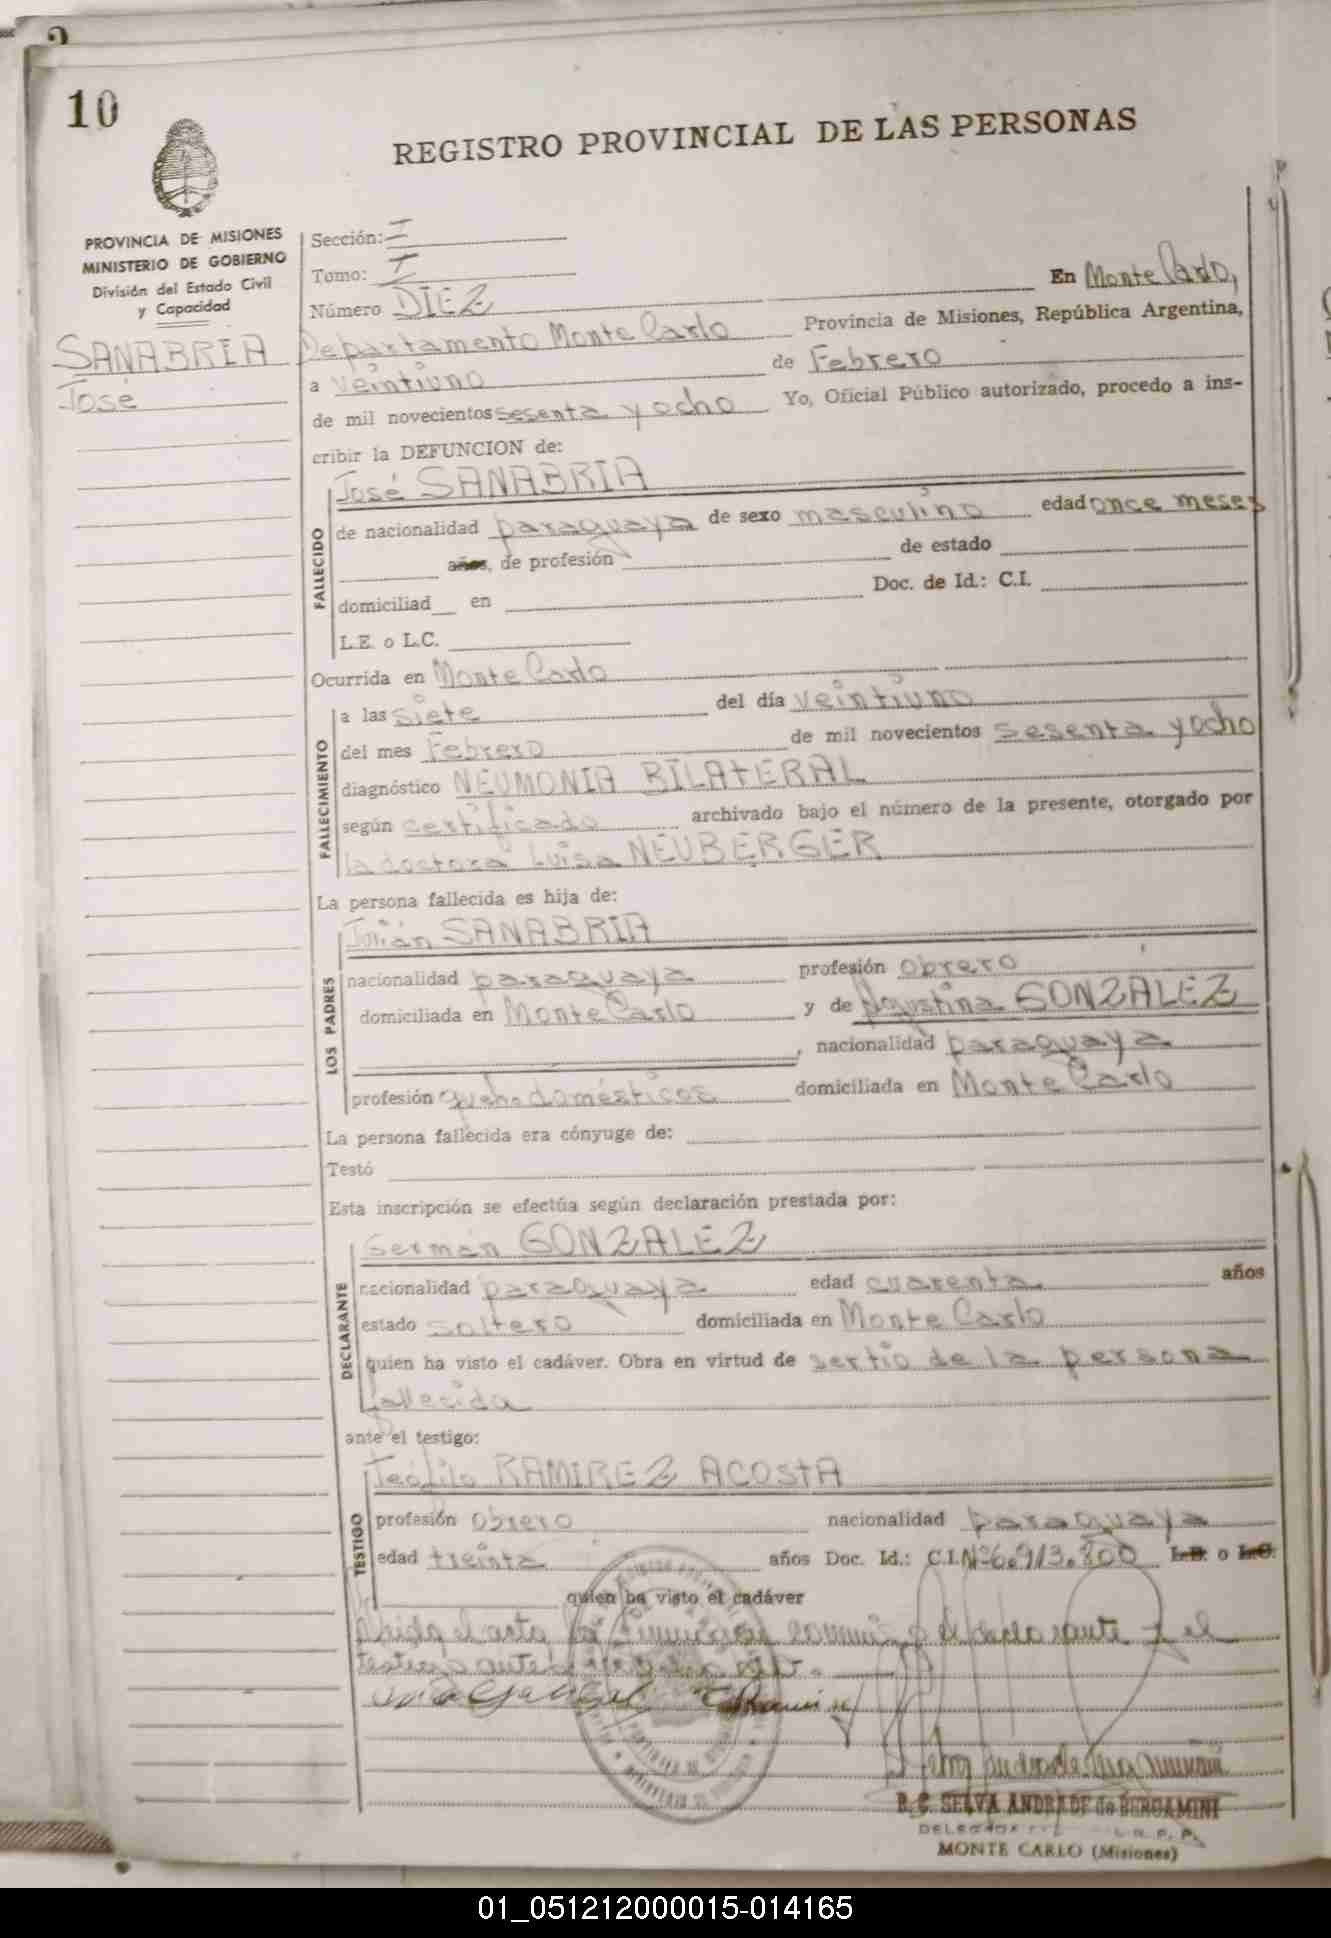 10
REGISTRO PROVINCIAL DE LAS PERSONAS
PROVINCIA DE MISIONES
MINISTERIO DE GOBIERNO
División del Estado Civil
y Capacidad
SANABRIA
José
Sección: I
Tomo: I
Número DIEZ En Monte Carlo,
Departamento Monte Carlo Provincia de Misiones, República Argentina,
a veintiuno de Febrero
de mil novecientos sesenta y ocho Yo, Oficial Público autorizado, procedo a ins-
cribir la DEFUNCION de:
FALLECIDO
José SANABRIA
de nacionalidad paraguaya de sexo masculino edad once meses
años, de profesión de estado
domiciliad en Doc. de Id.: C.I.
L.E. o L.C.
Ocurrida en Monte Carlo
FALLECIMIENTO
a las siete del día veintiuno
del mes Febrero de mil novecientos sesenta y ocho
diagnóstico NEUMONIA BILATERAL
según certificado archivado bajo el número de la presente, otorgado por
la doctora Luisa NEUBERGER
La persona fallecida es hija de:
LOS PADRES
Julián SANABRIA
nacionalidad paraguaya profesión obrero
domiciliada en Monte Carlo y de Agustina GONZALEZ
, nacionalidad paraguaya
profesión queh. domésticos domiciliada en Monte Carlo
La persona fallecida era cónyuge de:
Testó
Esta inscripción se efectúa según declaración prestada por:
DECLARANTE
Germán GONZALEZ
nacionalidad paraguaya edad cuarenta años
estado soltero domiciliada en Monte Carlo
quien ha visto el cadáver. Obra en virtud de ser tío de la persona
fallecida
ante el testigo:
TESTIGO
Teófilo RAMIREZ ACOSTA
profesión obrero nacionalidad paraguaya
edad treinta años Doc. Id.: C.I. Nº 6.913.800 L.E. o L.C.
quien ha visto el cadáver
el acta declarante y el
testigo ante
B. C. SELVA ANDRADE de BERGAMINI
MONTE CARLO (Misiones)
01_051212000015-014165